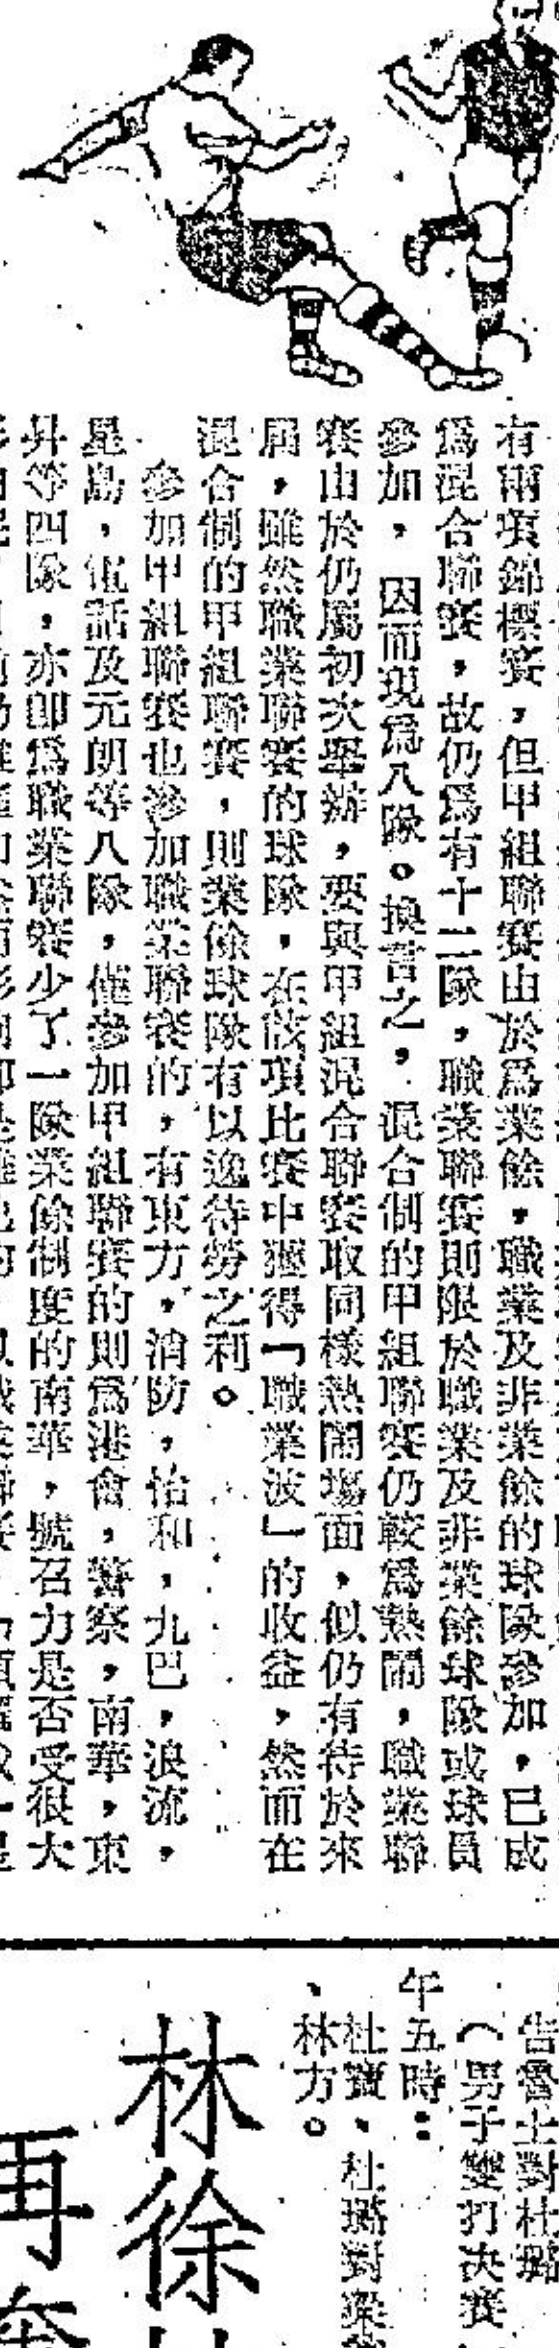 有兩項錦標賽，但甲組聯賽由於爲業餘，職業及非業餘的球隊參加，已成
爲混合聯賽，故仍爲有十二隊，職業聯賽則限於職業及非業餘球隊或球員
參加，因而現爲八隊。換言之，混合制的甲組聯賽仍較爲熱鬧，職業聯
賽由於仍屬初次舉辦，要與甲組混合聯賽取同樣熱鬧塲面，似仍有待於來
屆，雖然職業聯賽的球隊，在該項比賽中獲得「職業波」的收益，然而在
混合制的甲組聯賽，則業餘球隊有以逸待勞之利。
參加甲組聯賽也參加職業聯賽的，有東方，消防，怡和，九巴，浪流，
星島，電話及元朗等八隊，僅參加甲組聯賽的則爲港會，警察，南華，東
昇等四隊，亦卽爲職業聯賽少了一隊業餘制度的南華，號召力是否受很大
告魯士對杜璐
（男子雙打決賽
午五時：
杜寶、杜璐對梁
、林方。
林徐
再